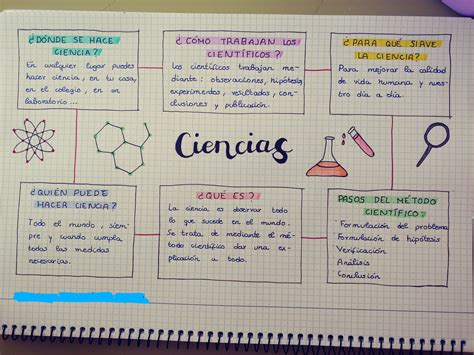 ¿DÓNDE SE HACE
CIENCIA?
En cualquier lugar puedes
hacer ciencia, en tu casa,
en el colegio, en un
laboratorio...
¿CÓMO TRABAJAN LOS
CIENTÍFICOS?
Los científicos trabajan me-
diante: observaciones, hipótesis,
experimentos, resultados, con-
clusiones y publicación.
¿PARA QUÉ SIRVE
LA CIENCIA?
Para mejorar la calidad
de vida humana y nues-
tro día a día.
Ciencias
¿QUIÉN PUEDE
HACER CIENCIA?
Todo el mundo, siem-
pre y cuando cumpla
todas las medidas
necesarias.
¿QUÉ ES?
La ciencia es observar todo
lo que sucede en el mundo.
Se trata de mediante el mé-
todo científico dar una ex-
plicación a todo.
PASOS DEL MÉTODO
CIENTÍFICO:
Formulación del problema
Formulación de hipótesis
Verificación
Análisis
Conclusión